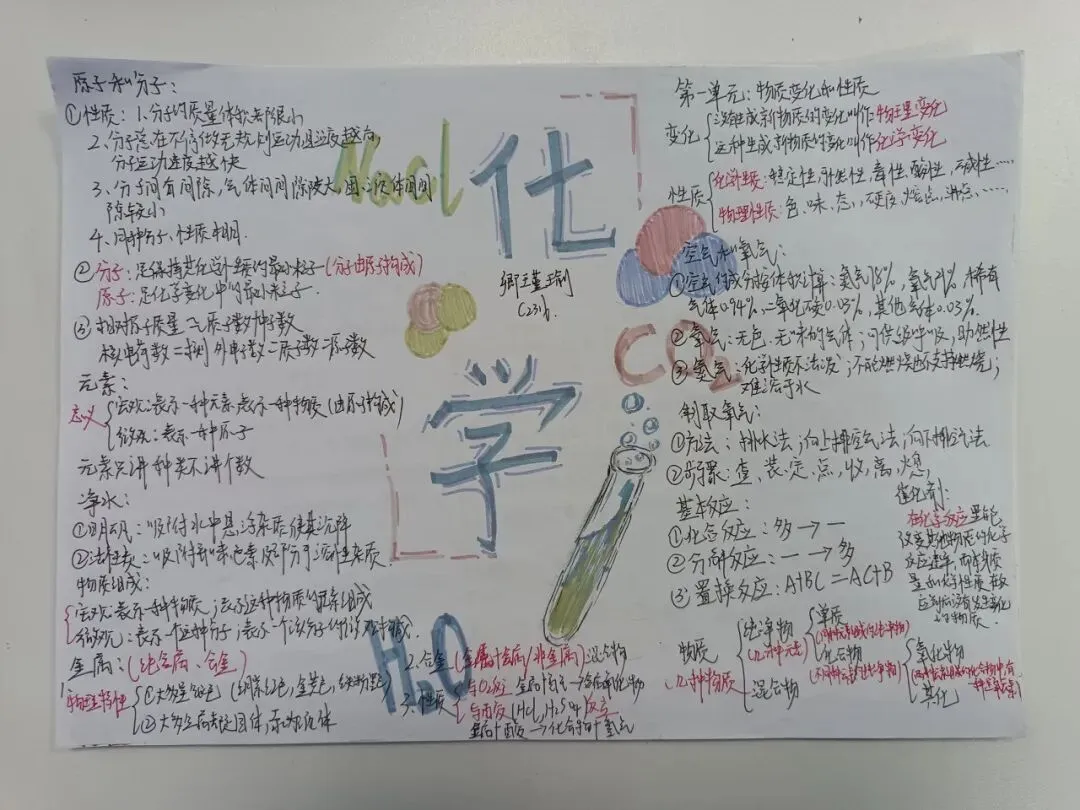 原子和分子:
①性质:1、分子的质量体积都很小
2、分子总在不停做无规则运动且温度越高
分子运动速度越快
3、分子间有间隙,气体间间隙较大,固、液体间间
隙较小
4、同种分子、性质相同.
②分子:是保持其化学性质的最小粒子(分子由原子构成)
原子:是化学变化中的最小粒子.
③相对原子质量≈质子数+中子数
核电荷数=核外电子数=质子数=原子数
元素:
意义
宏观:表示一种元素,表示一种物质(由原子构成)
微观:表示一种原子
元素只讲种类不讲个数
净水:
①明矾:吸附水中悬浮杂质使其沉降
②活性炭:吸附异味色素及部分可溶性杂质.
物质组成:
宏观:表示一种物质;表示这种物质的元素组成
微观:表示一个这种分子;表示一个该分子的微观构成.
金属:(纯金属、合金)
1.物理特性
①大多呈银色(铜紫红色,金黄色,铁粉黑色)
②大多是固态固体,汞为液体
2.合金(金属+金属/非金属)混合物
3.性质
与O₂反应 金属+氧气→金属氧化物
与酸反应(HCl,H₂SO₄)反应
金属+酸→化合物+氢气
Nacl
化
学
(231).
CO₂
H₂O
第一单元:物质变化和性质
变化
没有生成新物质的变化叫作物理变化
这种生成新物质的变化叫作化学变化
性质
化学性质:稳定性,可燃性,毒性,酸性,碱性……
物理性质:色、味、态、硬度、熔点、沸点、……
空气和氧气:
①空气的成分按体积计算:氮气78%,氧气21%,稀有
气体0.94%,二氧化碳0.03%,其他气体0.03%.
②氧气:无色、无味的气体;可供给呼吸,助燃性
③氮气:化学性质不活泼;不能燃烧也不支持燃烧;
难溶于水
制取氧气:
①方法:排水法;向上排空气法;向下排空气法
②步骤:查、装、定、点、收、离、熄,
基本反应:
①化合反应:多→一
②分解反应:一→多
③置换反应:A+BC=AC+B
催化剂:
在化学反应里能
改变其他物质的化学
反应速率,而本身质
量和化学性质在反
应前后没有发生变化
的物质.
物质
(几种物质)
纯净物
(几种元素)
混合物
单质
(同种元素组成的纯净物)
化合物
(不同种元素组成的纯净物)
氧化物
(两种元素组成的化合物中,有
一种是氧元素)
其他